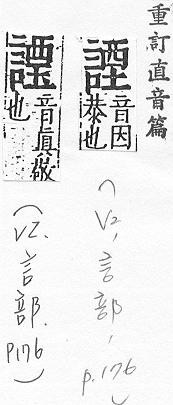 重訂直音篇
諲
音因
恭也
(V2,言部,p.176)
音真敬
也
(V2.言部.p176)